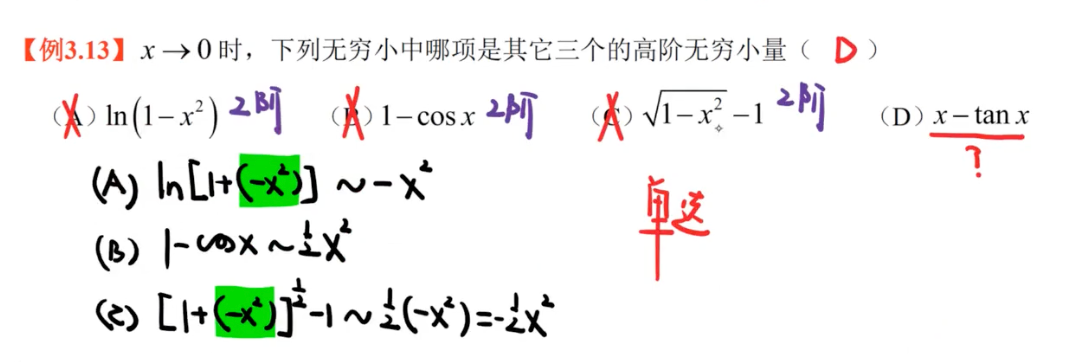 【例3.13】x→0时，下列无穷小中哪项是其它三个的高阶无穷小量（ D ）
（A）ln(1−x²) 2阶 （B）1−cos x 2阶 （C）√(1−x²)−1 2阶 （D）x−tan x
?
(A) ln[1+(-x²)] ~ -x²
单选
(B) 1-cosx ~ ½x²
(C) [1+(-x²)]^½-1 ~ ½(-x²)=-½x²